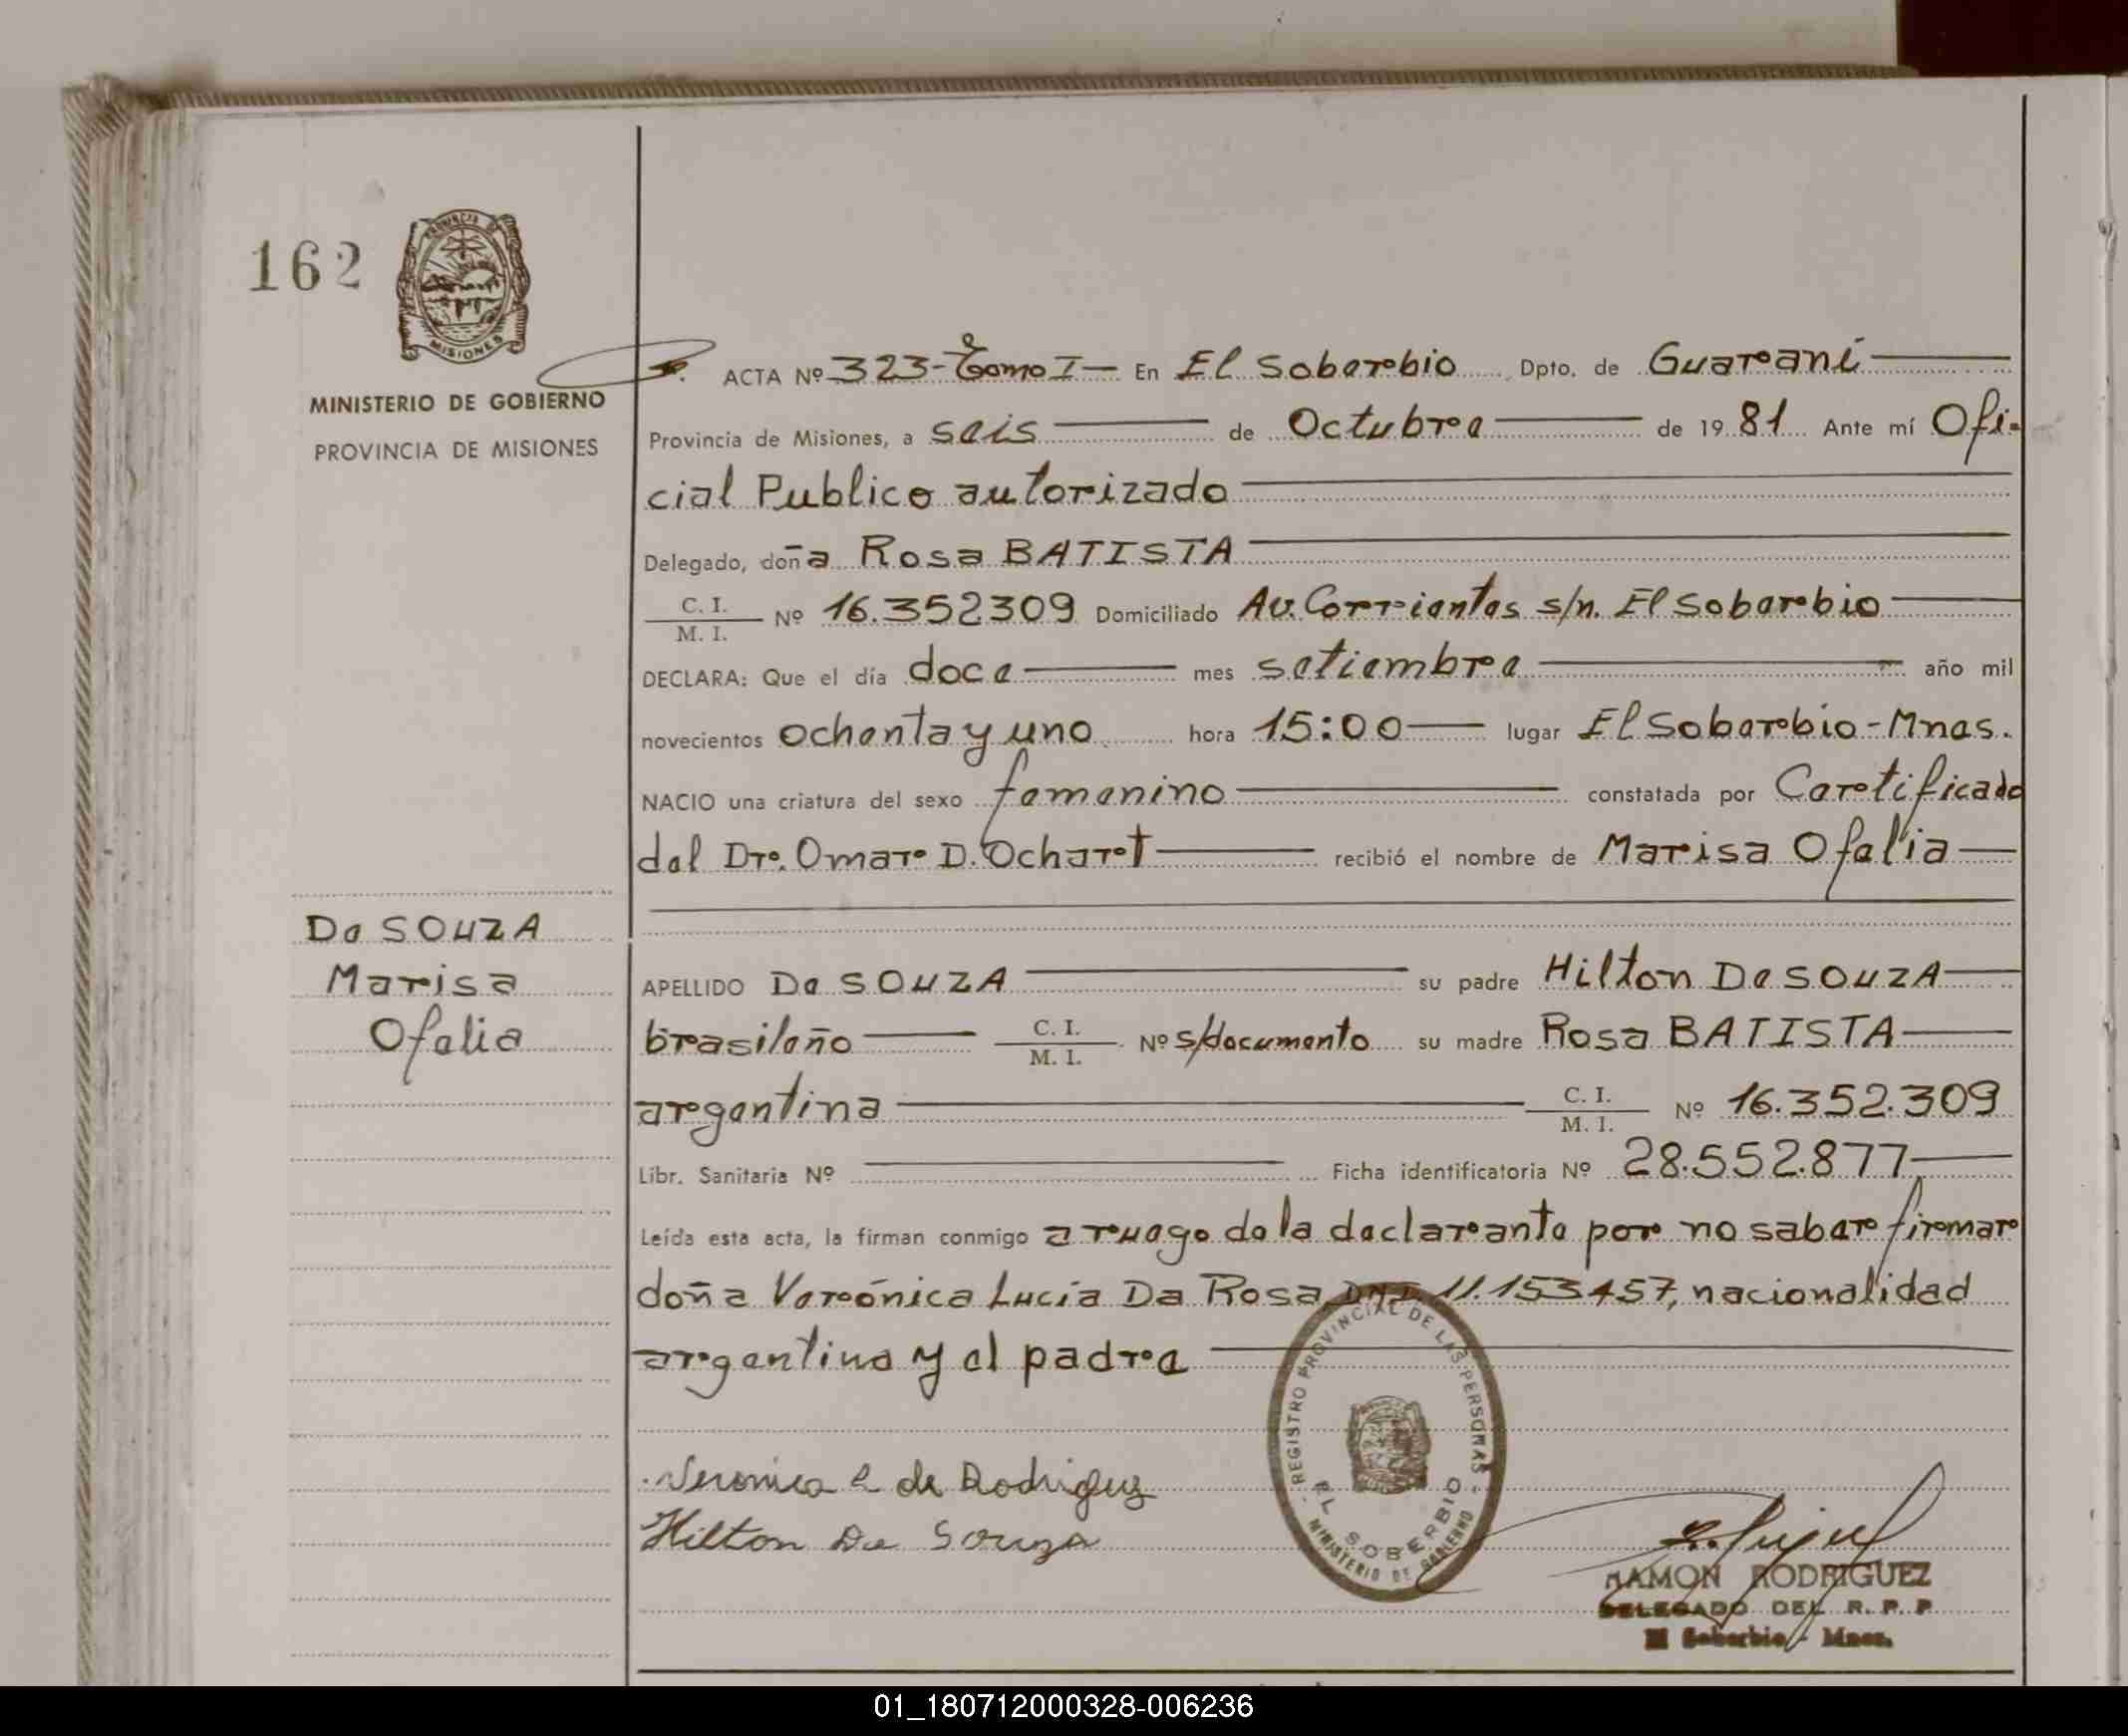 162
PROVINCIA DE
MISIONES
MINISTERIO DE GOBIERNO
PROVINCIA DE MISIONES
ACTA Nº 323-Tomo I- En El Soberbio Dpto. de Guaraní
Provincia de Misiones, a seis de Octubre de 1981 Ante mí Ofi-
cial Publico autorizado
Delegado, doña Rosa BATISTA
C. I.
M. I. Nº 16.352309 Domiciliado Av. Corrientes s/n. El Soberbio
DECLARA: Que el día doce mes setiembre año mil
novecientos ochenta y uno hora 15:00 lugar El Soberbio - Mnes.
NACIO una criatura del sexo femenino constatada por Certificado
del Dr. Omar D. Ochart recibió el nombre de Marisa Ofelia
De SOUZA
Marisa
Ofelia
APELLIDO De SOUZA su padre Hilton De SOUZA
brasileño C. I.
M. I. Nº s/documento su madre Rosa BATISTA
argentina C. I.
M. I. Nº 16.352.309
Libr. Sanitaria Nº Ficha identificatoria Nº 28.552.877
Leída esta acta, la firman conmigo a ruego de la declarante por no saber firmar
doña Verónica Lucía Da Rosa DNI 11.153457, nacionalidad
argentina y el padre
Veronica L de Rodriguez
Hilton De Souza
REGISTRO PROVINCIAL DE LAS PERSONAS
EL SOBERBIO
MINISTERIO DE GOBIERNO
RAMON RODRIGUEZ
DELEGADO DEL R. P. P
El Soberbio - Mnes.
01_180712000328-006236